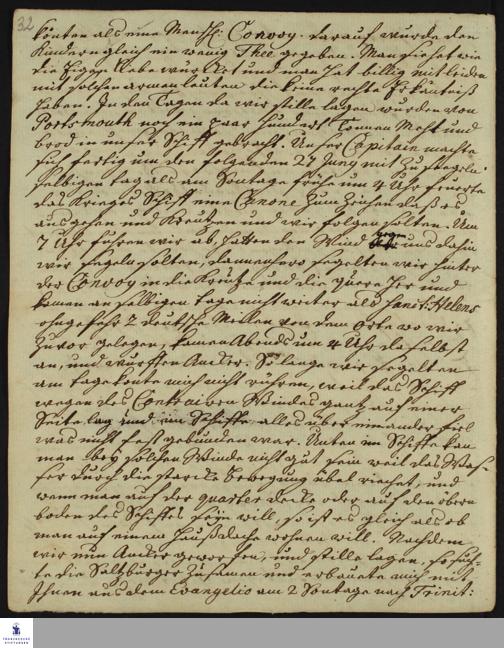 32
könten als eine Menschl: Convoy. darauf wurde den
Kindern gleich ein wenig Thee gegeben. Man siehet wie
die Eigen Liebe würcket und man hat billig mitleiden
mit solchen armen leuten die keine rechte Erkäntniß
haben. In den Tagen da wir stille lagen wurden von
Portsmouth noch ein paar hundert Tonnen Mehl und
brod in unser Schiff gebracht. Unser Capitain machte
sich fertig um den folgenden 27 Juny mit zu segeln.
selbigen tag als am Sontage frühe um 4 Uhr feuerte
das Krieges Schiff eine Canone zum Zeichen daß es
ausgehen und Kreutzen und wir folgen solten. Um
7 Uhr fuhren wir ab, hatten den Wind gegen uns dahin
wir segeln solten, dannenhero segelten wir hinter
der Convoy in die Kreütz und die queere her und
kamen an selbigen tage nicht weiter als Sanct: Helens
ohngefehr 2 deutsche Meilen von dem Orte wo wir
zuvor gelegen, kamen Abends um 4 Uhr daselbst
an, und wurffen Ancker. So lange wir segelten
am tage konte mich nicht rühren, weil das Schiff
wegen des Contrairen Windes gantz auf einer
Seite lag und im Schiffe alles über einander fiel
was nicht fest gebunden war. Unten im Schiffe kan
man bey solchen Winde nicht gut seyn weil das Waß-
ser durch die starcke bewegung übel riechet, und
wenn man auf der quarter decke oder auf den obern
boden des Schiffes seyn will, so ist es gleich als ob
man auf einem Haußdache wohnen will. Nachdem
wir nun Ancker geworffen, und stille lagen, so such-
te die Saltzburger zusamen und erbauete mich mit
Ihnen aus dem Evangelio am 2 Sontage nach Trinit:
FRANCKESCHE
STIFTUNGEN